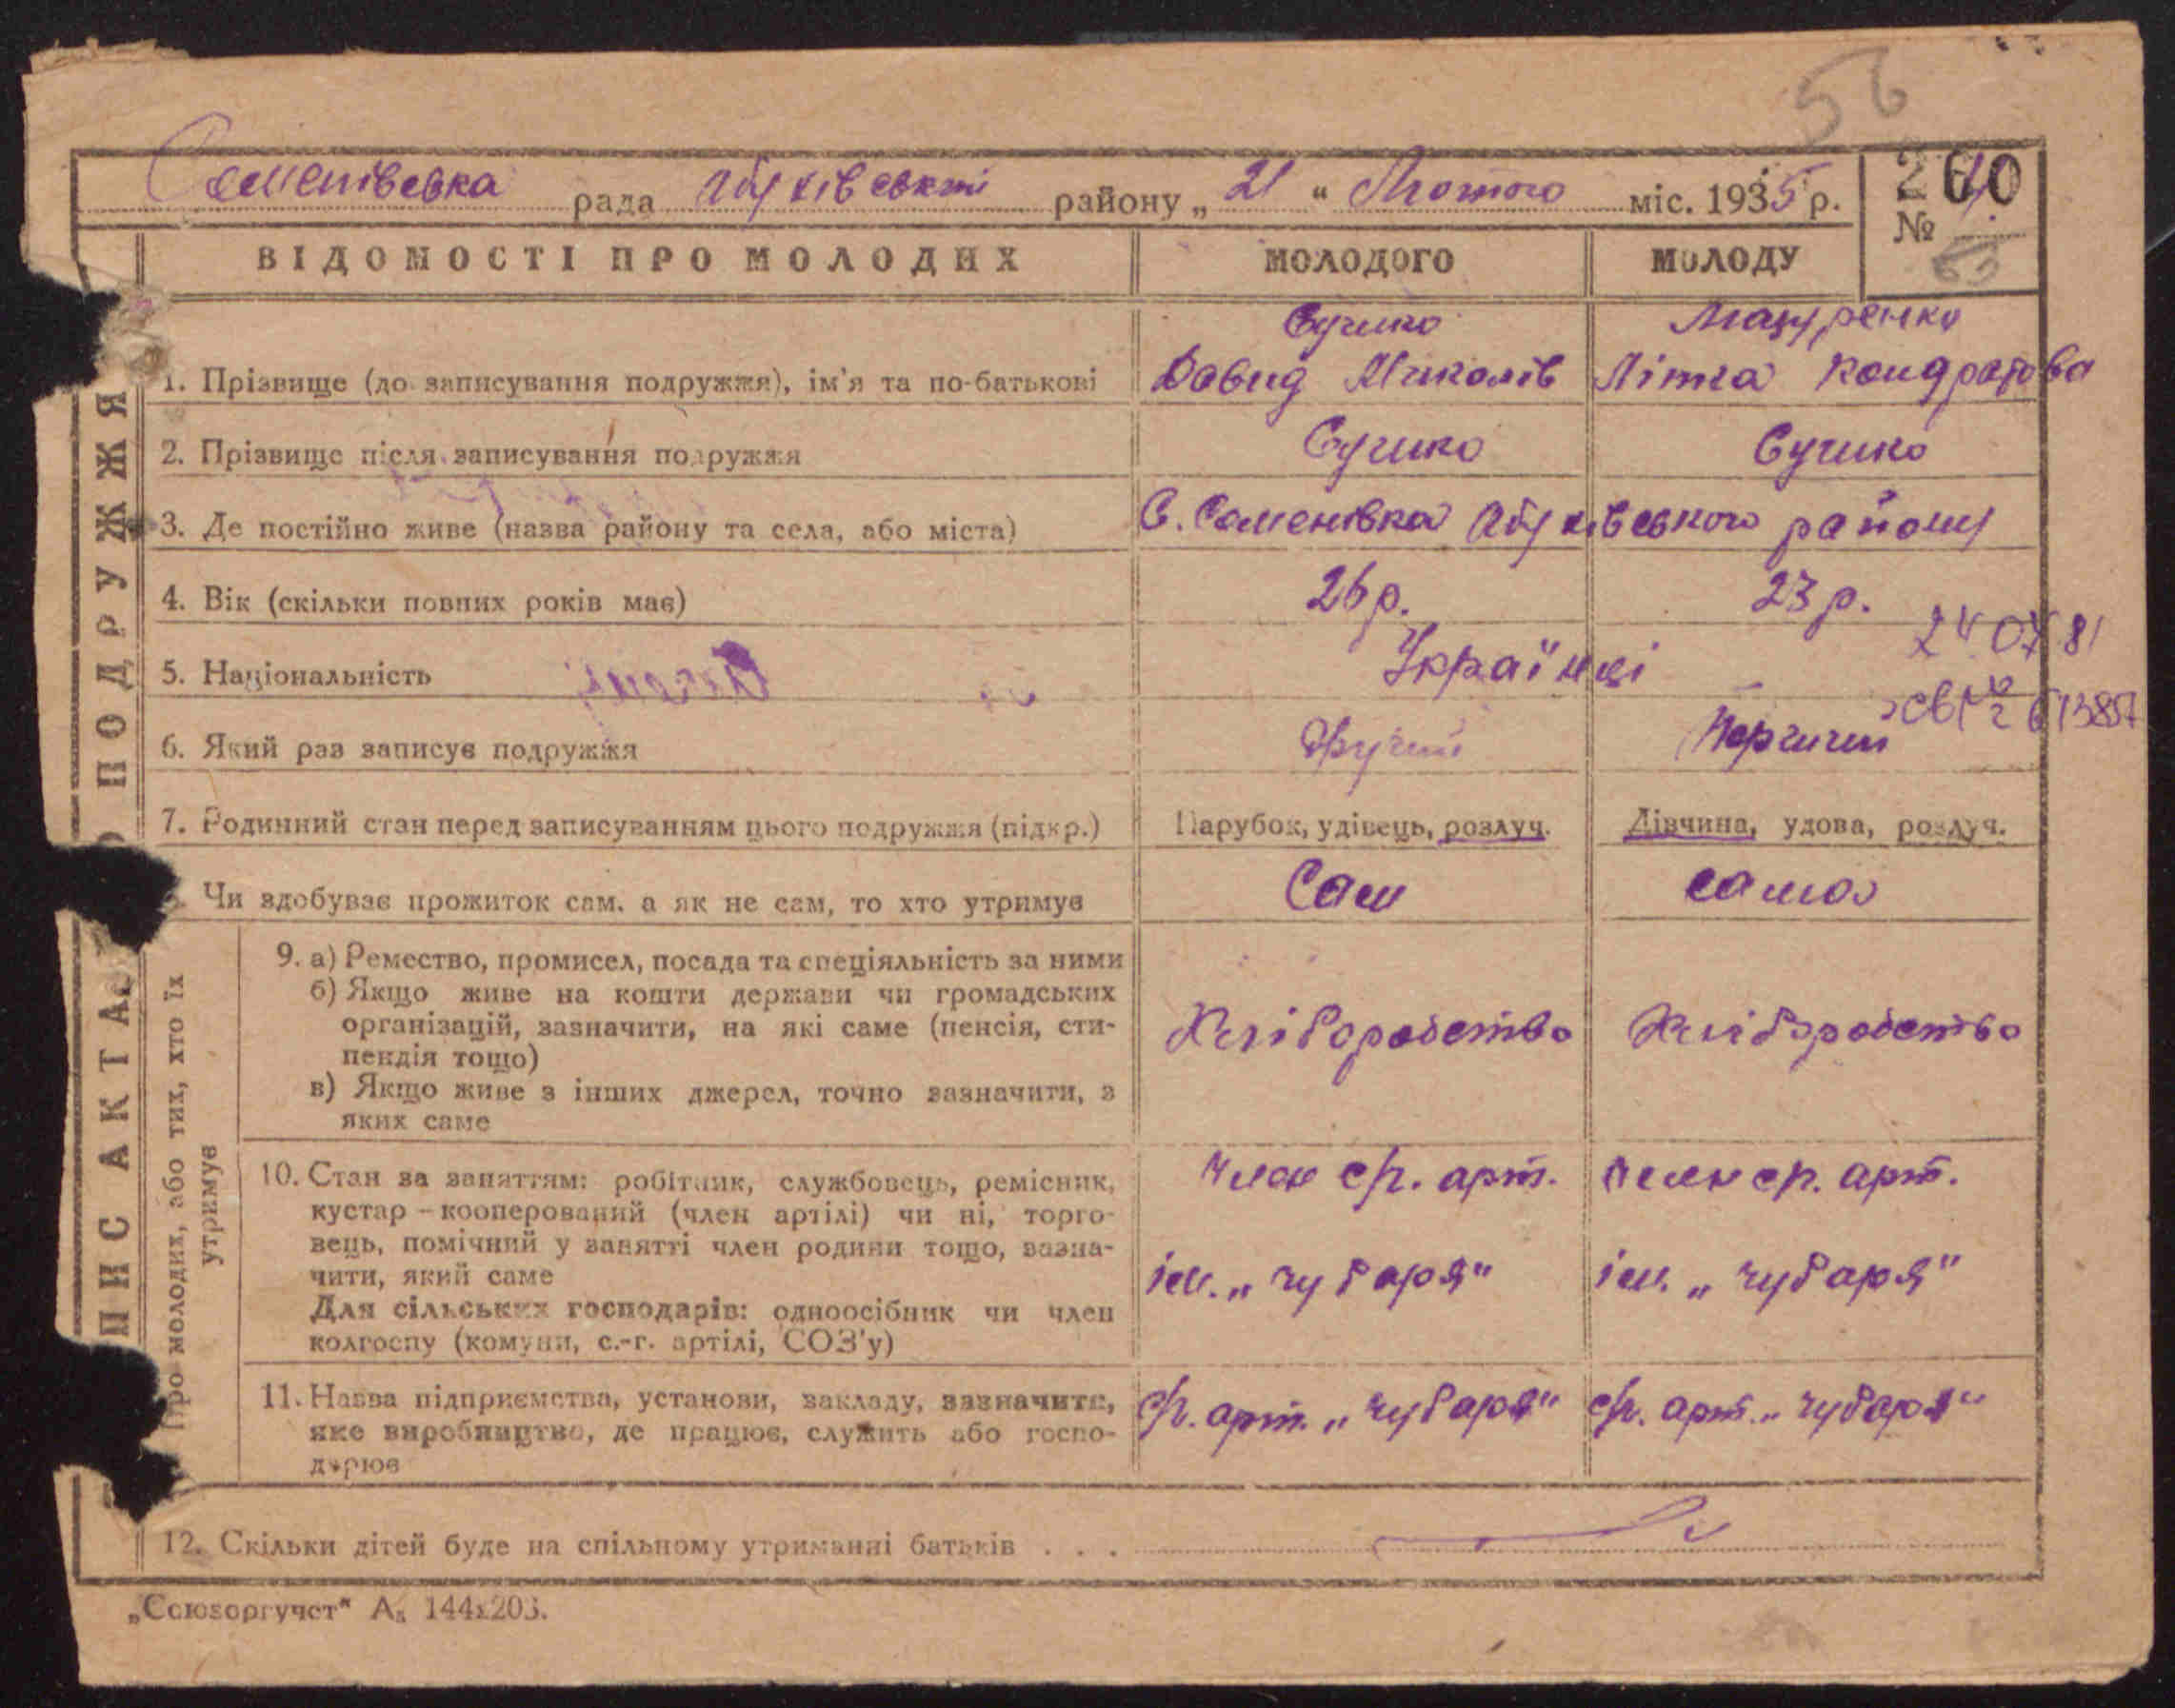 56
Семенівська рада Обухівський району „ 21 “ Лютого міс. 1935 р.
260
№
ВІДОМОСТІ ПРО МОЛОДИХ
МОЛОДОГО
МОЛОДУ
ПИС АКТА ПОДРУЖЖЯ
1. Прізвище (до записування подружжя), ім'я та по-батькові
Сушко
Давид Миколів
Мазуренко
Кондратова
2. Прізвище після записування подружжя
Сушко
Сушко
3. Де постійно живе (назва району та села, або міста)
С. Семенівка Обухівського району
4. Вік (скільки повних років має)
26 р.
23 р.
24 07 81
5. Національність
Українці
6. Який раз записує подружжя
Другий
Перший
7. Родинний стан перед записуванням цього подружжя (підкр.)
Парубок, удівець, розлуч.
Дівчина, удова, розлуч.
Чи здобуває прожиток сам, а як не сам, то хто утримує
Сам
сама
Про молодих, або тих, хто їх
утримує
9. а) Ремество, промисел, посада та спеціяльність за ними
б) Якщо живе на кошти держави чи громадських
організацій, зазначити, на які саме (пенсія, сти-
пендія тощо)
в) Якщо живе з інших джерел, точно зазначити, з
яких саме
Хліборобство
Хліборобство
10. Стан за заняттям: робітник, службовець, ремісник,
кустар – кооперований (член артілі) чи ні, торго-
вець, помічний у занятті член родини тощо, зазна-
чити, який саме
Для сільських господарів: одноосібник чи член
колгоспу (комуни, с.-г. артілі, СОЗ'у)
член с/г. арт.
ім. „Чубаря“
член с/г. арт.
ім. „Чубаря“
11. Назва підприємства, установи, закладу, зазначити,
яке виробництво, де працює, служить або госпо-
дарює
с/г. арт. „Чубаря“
с/г. арт. „Чубаря“
12. Скільки дітей буде на спільному утриманні батьків . . .
„Союзоргучет“ А₅ 144х203.